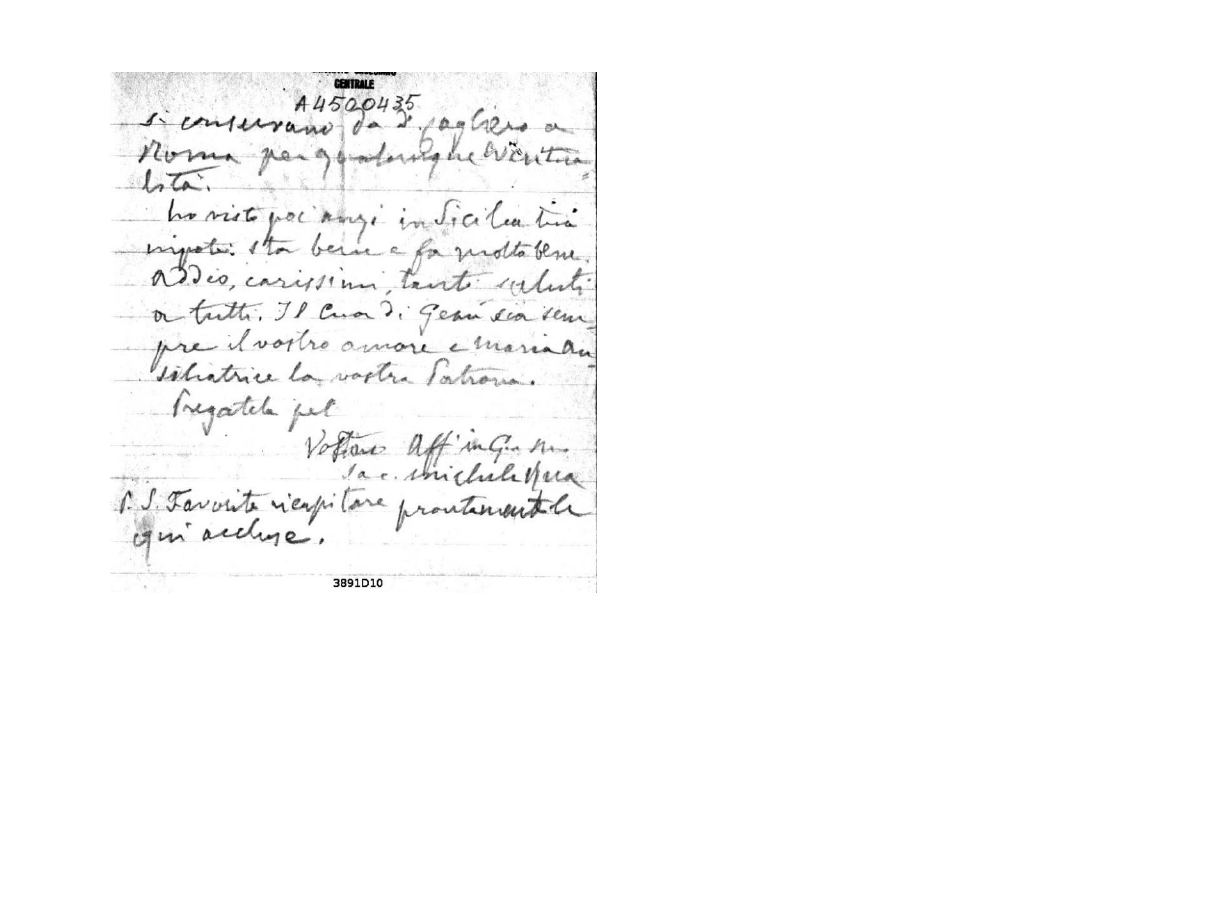 CENTRALE
A4500435
si conservano da D. Cagliero a
Roma per qualunque eventua=
lità.
Ho visto poc'anzi in Sicilia tuà
nipote: sta bene e fa molto bene.
Addio, carissimi, tanti saluti
a tutti. Il Cuor di Gesù sia sem=
pre il vostro amore e Maria Au=
siliatrice la vostra Patrona.
Pregatela pel
Vostro Aff. in G. e M.
Sac. Michele Rua
P. S. Favorite ricapitare prontamente le
qui accluse.
3891D10